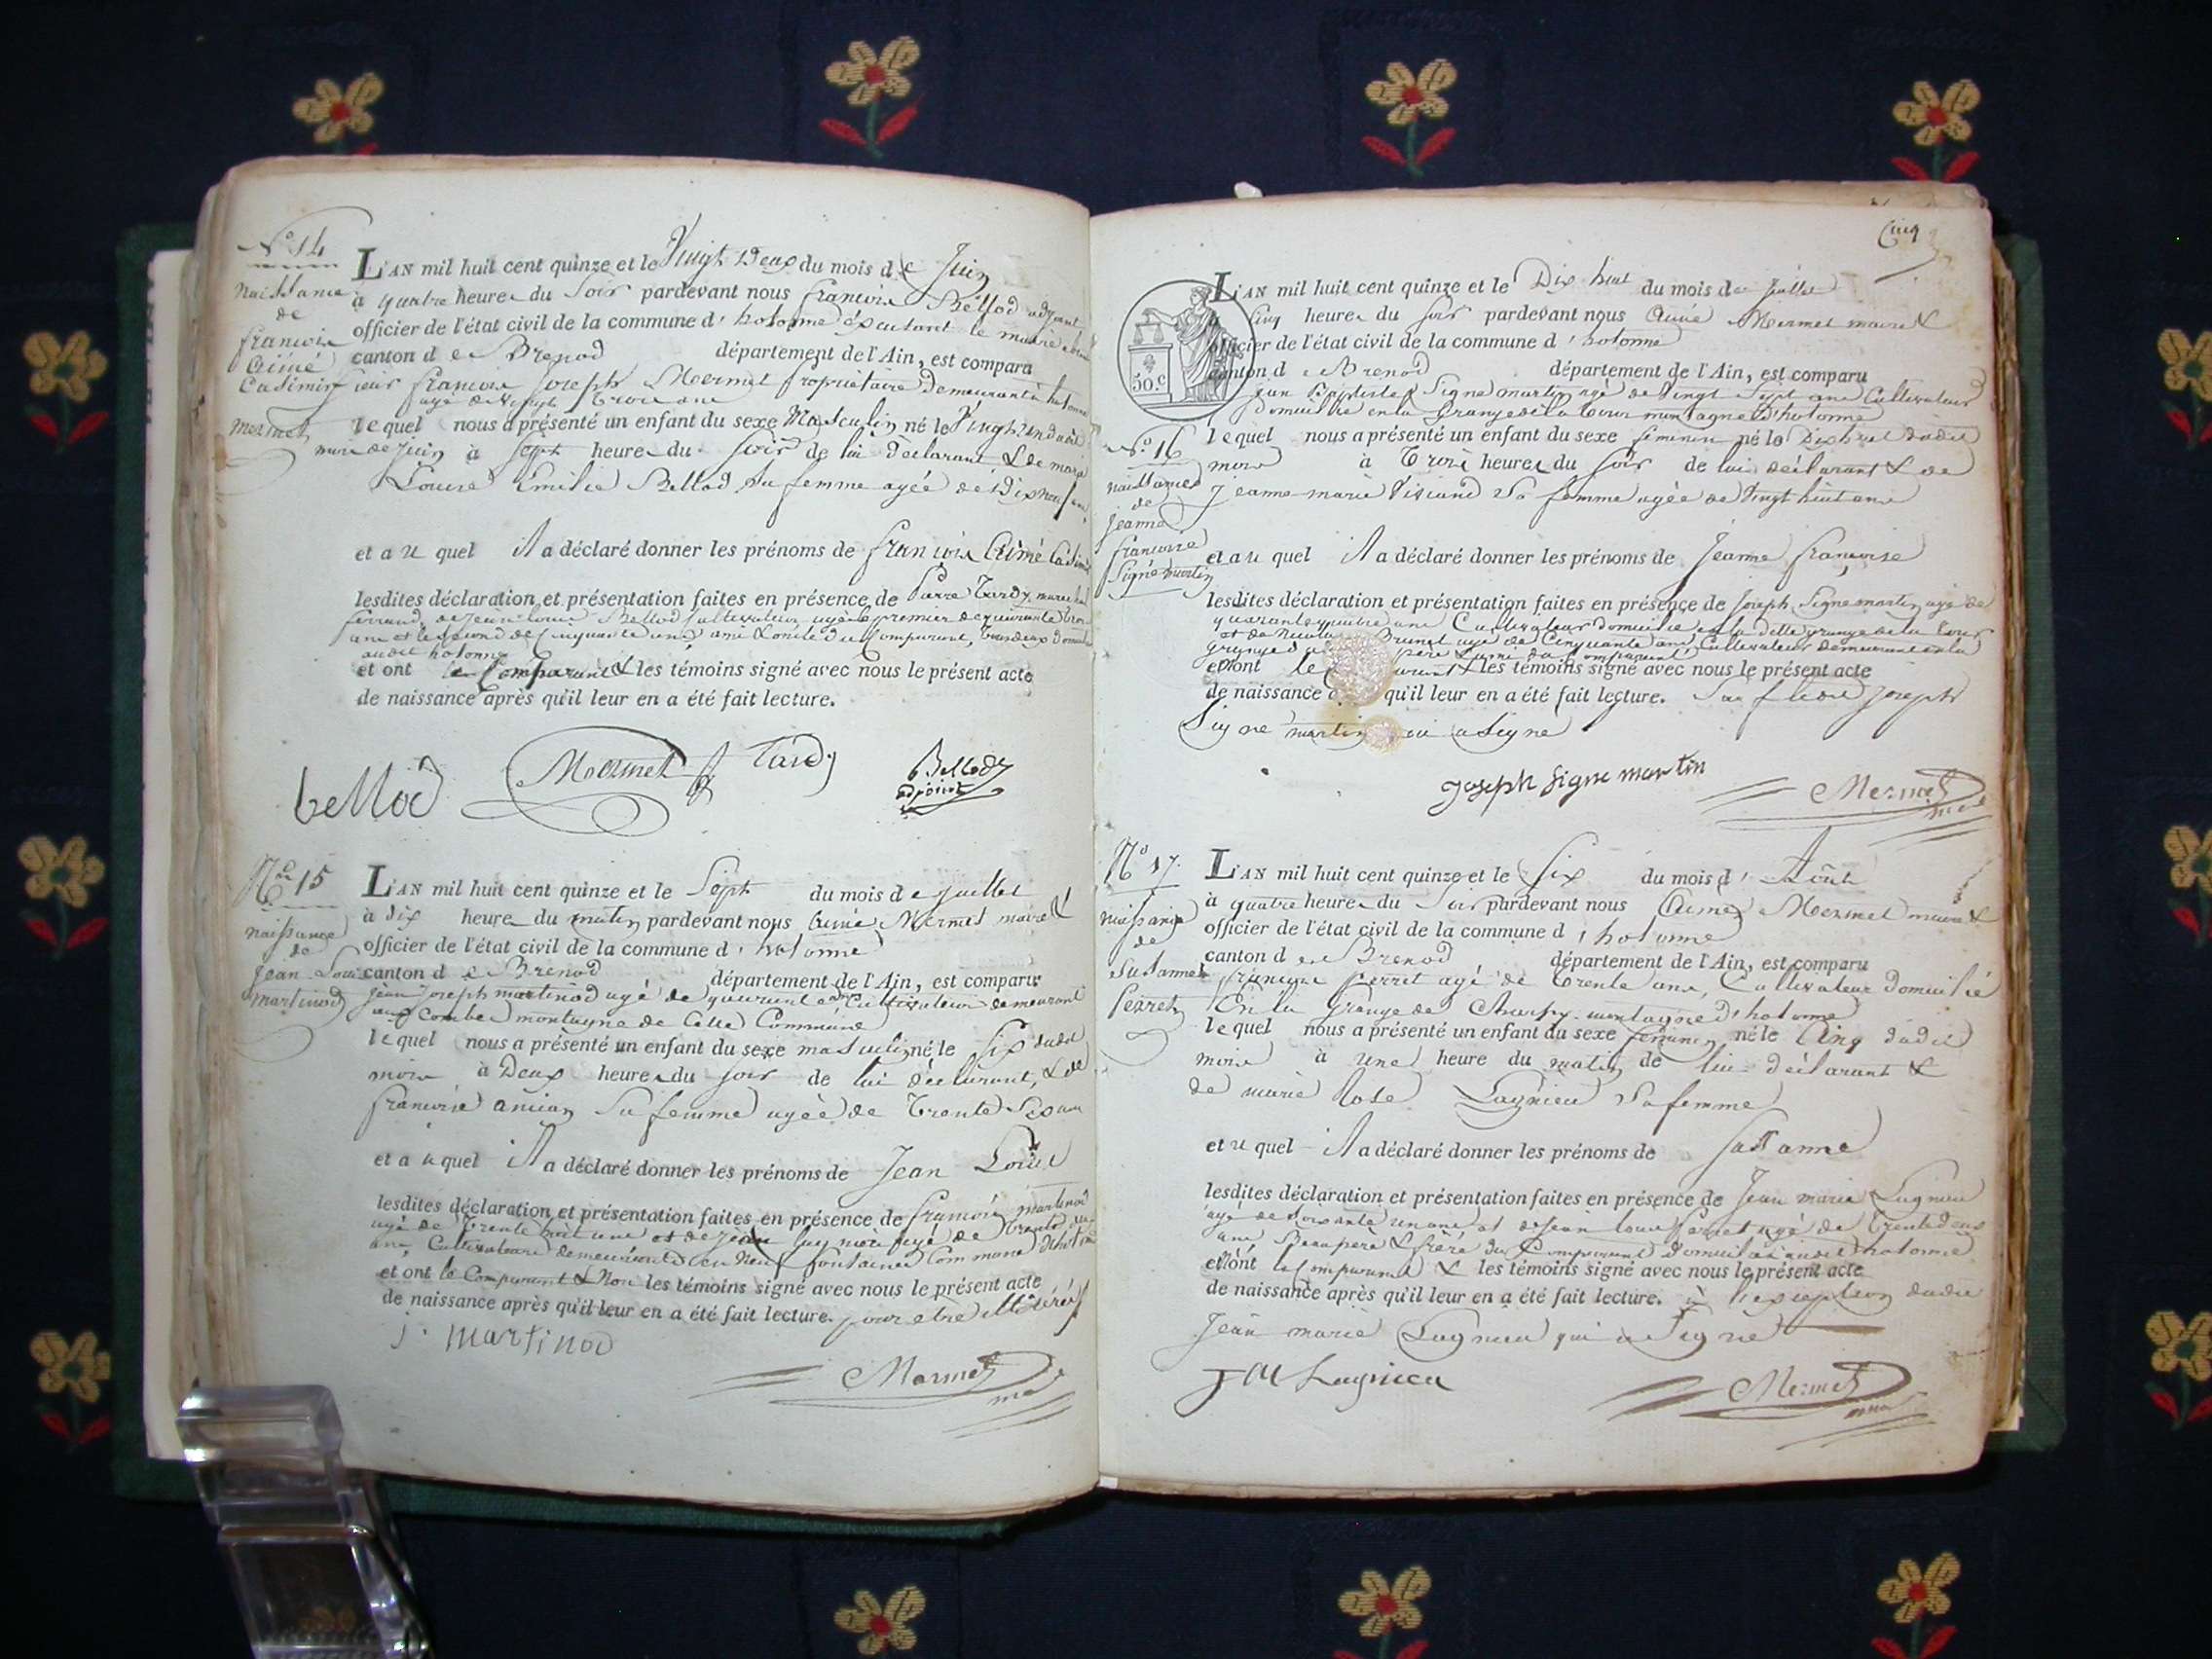 N.o 14
naissance
de
françois
Aimé
Casimir
Mermet
L'AN mil huit cent quinze et le Vingt Deux du mois de Juin
à quatre heures du Soir pardevant nous françois Bellod adjoint
officier de l'état civil de la commune d'hotonne éxcutant le maire
canton de Brenod département de l'Ain, est comparu
sieur françois joseph Mermet propriétaire Demeurant à hotonne
agé de Vingt trois ans
lequel nous a présenté un enfant du sexe Masculin né le Vingt un dudit
mois de juin à Sept heures du soir de lui déclarant, & de marie
Louise Emilie Bellod sa femme agée de Dix neuf ans
et auquel il a déclaré donner les prénoms de françois Aimé Casimir
lesdites déclaration et présentation faites en présence de Pierre Tardy marechal
ferrand, de jean louis Bellod cultivateur agés le premier de quarante trois
ans et le second de Cinquante un ans oncle du Comparant, tous deux domiciliés
audit hotonne
et ont le Comparant & les témoins signé avec nous le présent acte
de naissance après qu'il leur en a été fait lecture.
bellod Mermet Tardy Bellod
adjoint
N.o 15
naissance
de
Jean Louis
martinod
L'AN mil huit cent quinze et le Sept du mois de Juillet
à dix heures du matin pardevant nous Aimé Mermet maire &
officier de l'état civil de la commune d'hotonne
canton de Brenod département de l'Ain, est comparu
jean joseph martinod agé de quarant ans Cultivateur demeurant
aux Combes montagne de Cette Commune
lequel nous a présenté un enfant du sexe masculin né le six dudit
mois à Deux heures du soir de lui déclarant, & de
françoise ancian sa femme agée de Trente Six ans
et auquel il a déclaré donner les prénoms de Jean Louis
lesdites déclaration et présentation faites en présence de françois martinod
agé de trente huit ans et de jean agé de trente
ans, Cultivateurs demeurants en neuf fontaines Commune d'hotonne
et ont le Comparant & Non les témoins signé avec nous le présent acte
de naissance après qu'il leur en a été fait lecture. pour etre illitérés
j. martinod
Mermet
Cinq
30.c
L'AN mil huit cent quinze et le Dix huit du mois de juillet
à Cinq heures du soir pardevant nous Aimé Mermet maire &
officier de l'état civil de la commune d'hotonne
canton de Brenod département de l'Ain, est comparu
jean Baptiste Signe martin agé de Vingt Sept ans Cultivateur
domicilié en la Grange de la tour montagne d'hotonne
N.o 16
naissance
de
jeanne
françoise
Signe martin
lequel nous a présenté un enfant du sexe féminin né le Dixhuit dudit
mois à trois heures du soir de lui déclarant & de
jeanne marie sa femme agée de Vingt huit ans
et auquel il a déclaré donner les prénoms de Jeanne françoise
lesdites déclaration et présentation faites en présence de joseph Signe martin agé de
quarante quatre ans Cultivateur domicilié en la dette grange de la tour
et de Brunet agé de Cinquante ans Cultivateur demeurant en la
grange père & ami du Comparant
et ont le & les témoins signé avec nous le présent acte
de naissance qu'il leur en a été fait lecture. joseph
Signe martin qui a signé
joseph Signe martin
Mermet
N.o 17
naissance
de
Susanne
Perret
L'AN mil huit cent quinze et le Six du mois d'Août
à quatre heures du Soir pardevant nous Aimé Mermet maire &
officier de l'état civil de la commune d'hotonne
canton de Brenod département de l'Ain, est comparu
françois perret agé de trente ans, Cultivateur Domicilié
En la Grange de montagne d'hotonne
lequel nous a présenté un enfant du sexe féminin né le Cinq dudit
mois à une heure du matin de lui déclarant &
de marie Rose Lagnieu sa femme
et auquel il a déclaré donner les prénoms de Susanne
lesdites déclaration et présentation faites en présence de Jean marie Lagnieu
agé de soixante un ans et de jean louis perret agé de trente deux
ans Beaupere & frère du Comparant Domiciliés audit hotonne
et ont le Comparant & les témoins signé avec nous le présent acte
de naissance après qu'il leur en a été fait lecture. à l'exception dudit
Jean marie Lagnieu qui a signé
JM Lagnieu
Mermet